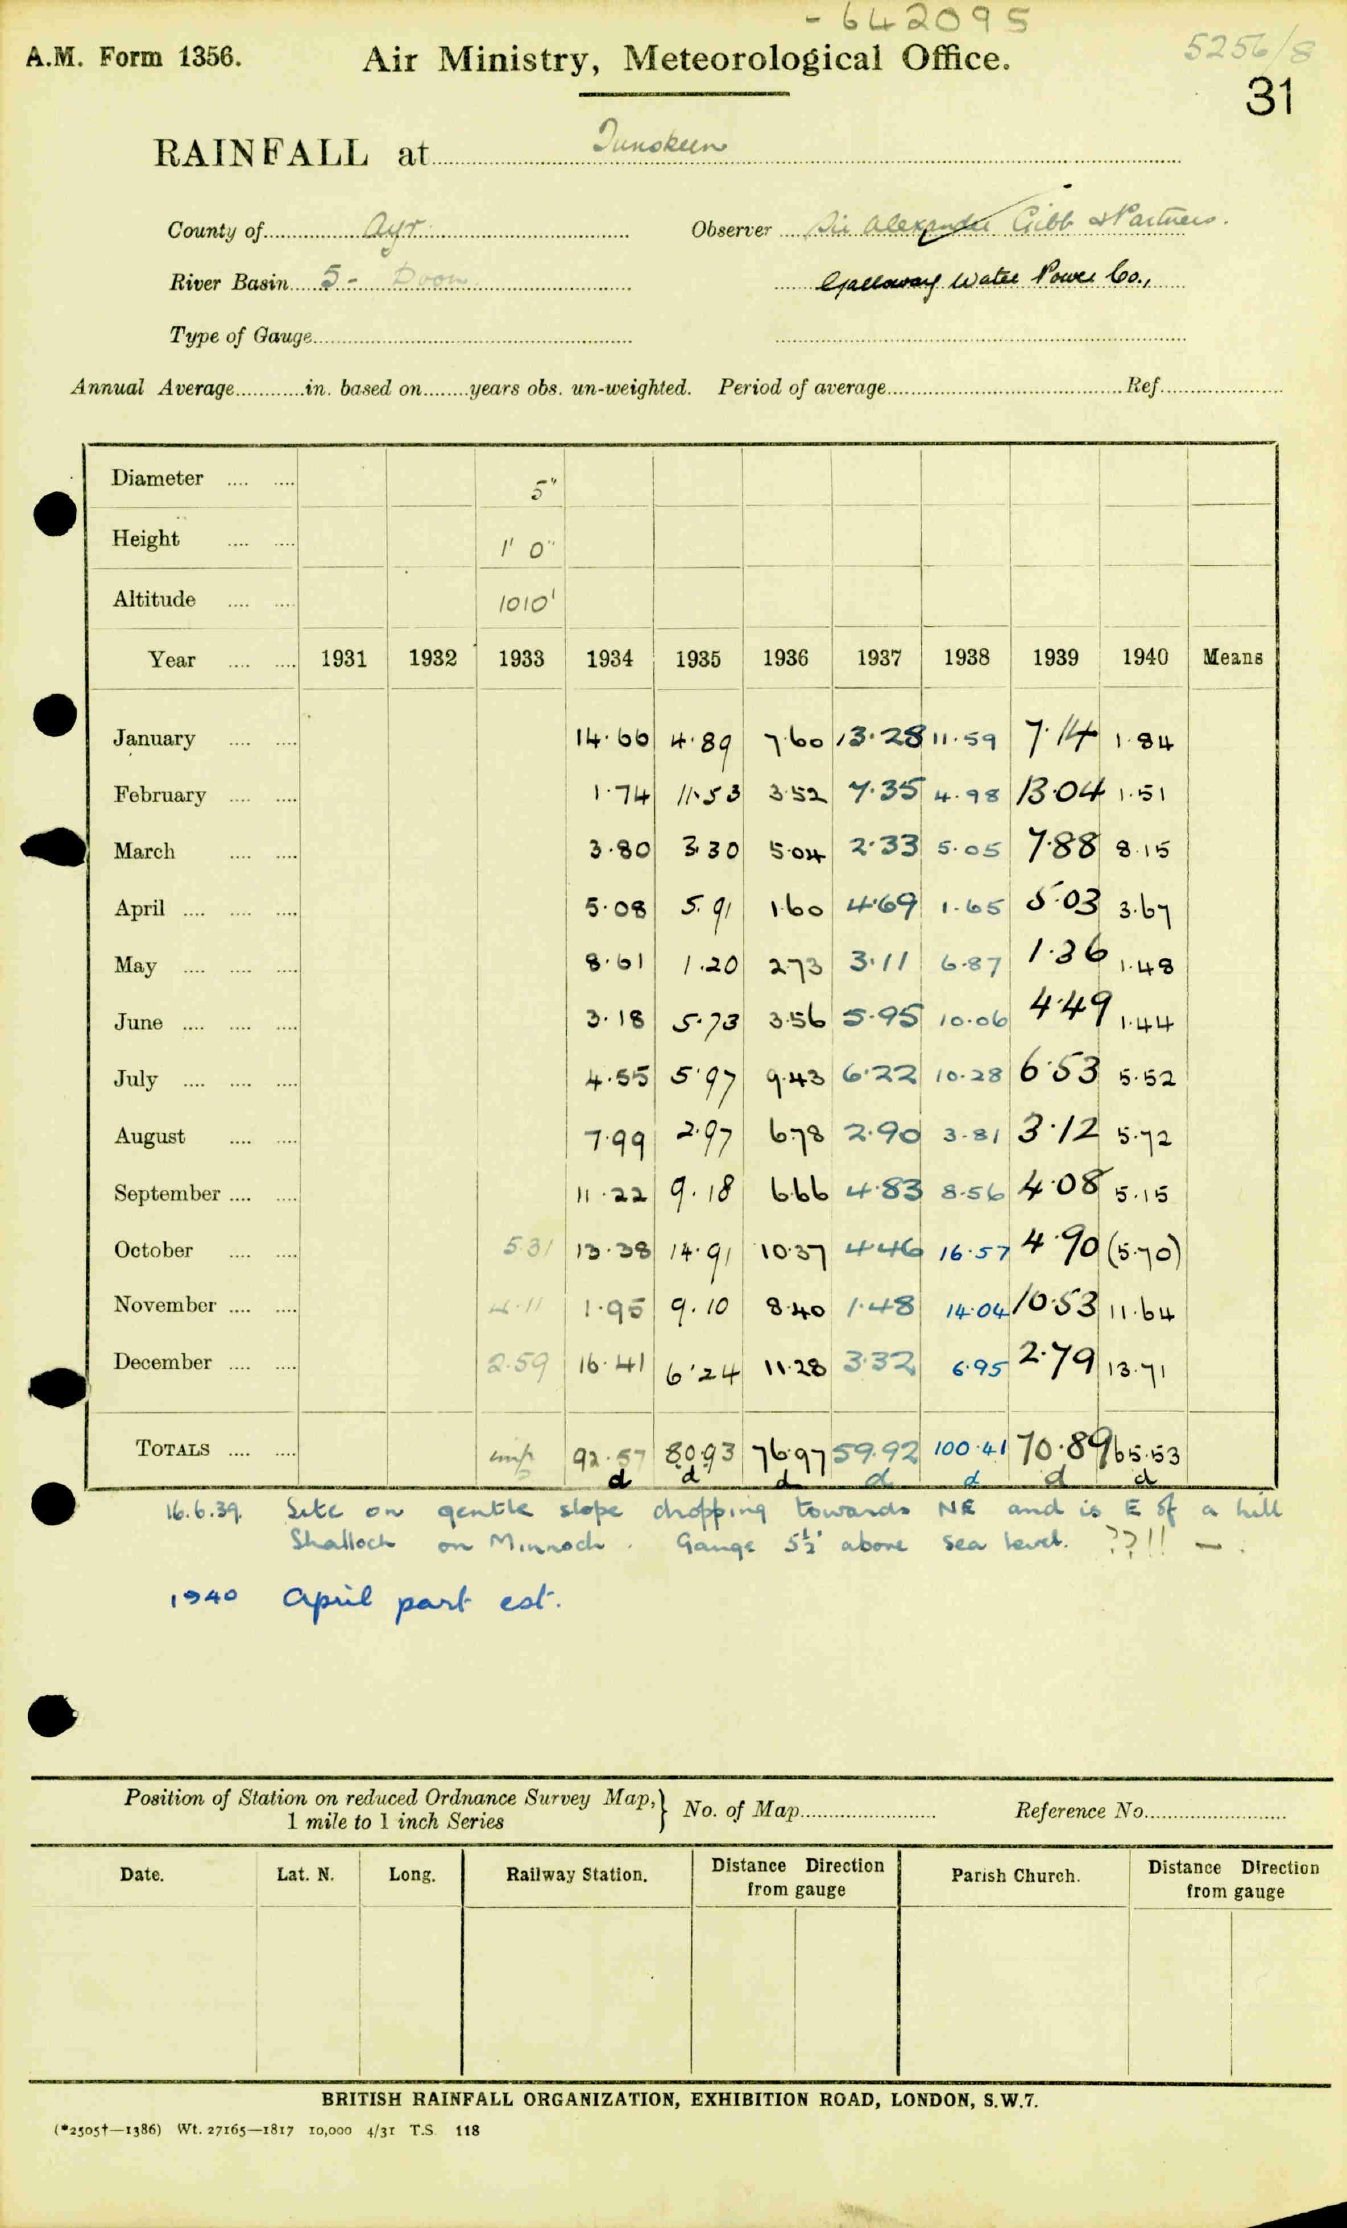 - 642095
A.M. Form 1356. Air Ministry, Meteorological Office. 5256/8
31
RAINFALL at Tunskeen
County of Ayr Observer Sir Alexander Gibb & Partners.
River Basin 5 - Doon Galloway Water Power Co.,
Type of Gauge
Annual Average in. based on years obs. un-weighted. Period of average Ref.
Diameter 5"
Height 1' 0"
Altitude 1010'
Year 1931 1932 1933 1934 1935 1936 1937 1938 1939 1940 Means
January 14.66 4.89 7.60 13.28 11.59 7.14 1.84
February 1.74 11.53 3.52 7.35 4.98 13.04 1.51
March 3.80 3.30 5.04 2.33 5.05 7.88 8.15
April 5.08 5.91 1.60 4.69 1.65 5.03 3.67
May 8.61 1.20 2.73 3.11 6.87 1.36 1.48
June 3.18 5.73 3.56 5.95 10.06 4.49 1.44
July 4.55 5.97 9.43 6.22 10.28 6.53 5.52
August 7.99 2.97 6.78 2.90 3.81 3.12 5.72
September 11.22 9.18 6.66 4.83 8.56 4.08 5.15
October 5.31 13.38 14.91 10.37 4.46 16.57 4.90 (5.70)
November 4.11 1.95 9.10 8.40 1.48 14.04 10.53 11.64
December 2.59 16.41 6.24 11.28 3.32 6.95 2.79 13.71
TOTALS imp 92.57 80.93 76.97 59.92 100.41 70.89 65.53
d d d d d d d
16.6.39. Site on gentle slope dropping towards NE and is E of a hill
Shalloch on Minnoch. Gauge 5½' above sea level. ??!! —.
1940 April part est.
Position of Station on reduced Ordnance Survey Map, } No. of Map Reference No.
1 mile to 1 inch Series
Date. Lat. N. Long. Railway Station. Distance Direction from gauge Parish Church. Distance Direction from gauge
BRITISH RAINFALL ORGANIZATION, EXHIBITION ROAD, LONDON, S.W.7.
(*2505†—1386) Wt. 27165—1817 10,000 4/31 T.S. 118